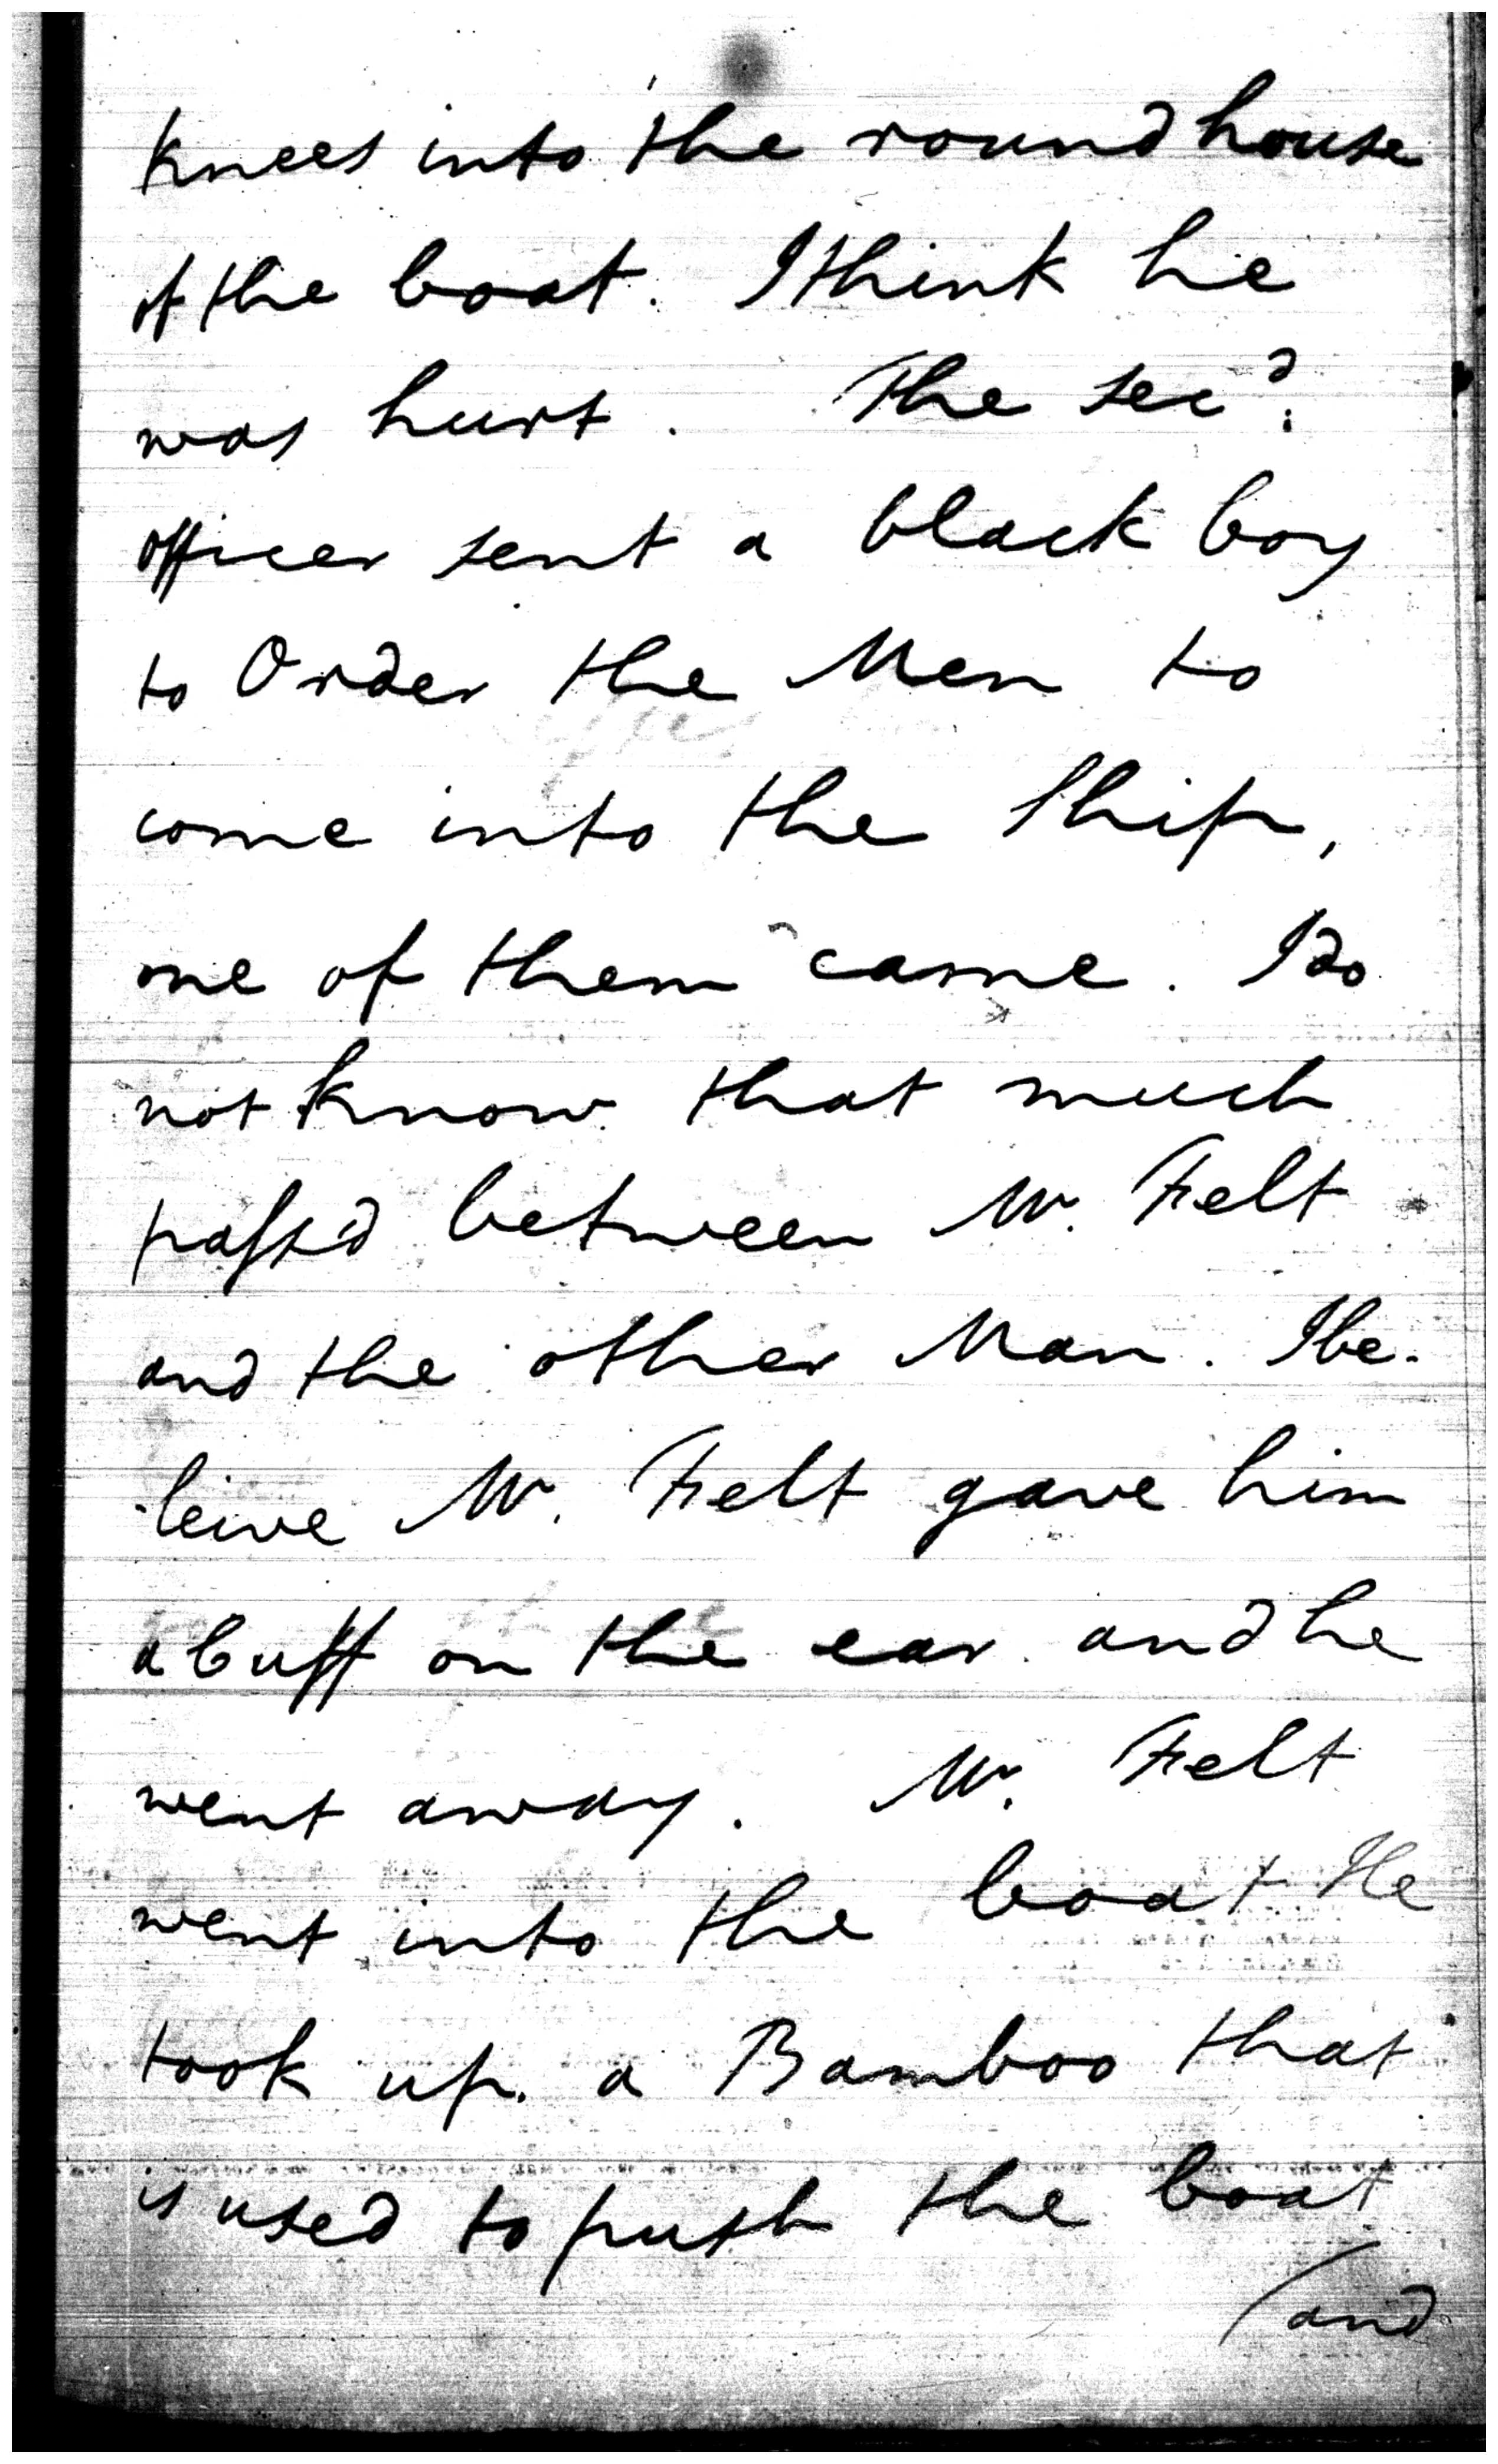 knees into the roundhouse
of the boat. I think he
was hurt. The secd.
officer sent a black boy
to Order the Men to
come into the Ship,
one of them came. I do
not know that much
pass'd between Mr. Felt
and the other Man. I be-
-leive Mr. Felt gave him
a buff on the ear and he
went away. Mr. Felt
went into the boat He
took up a Bamboo that
is used to push the boat
/and